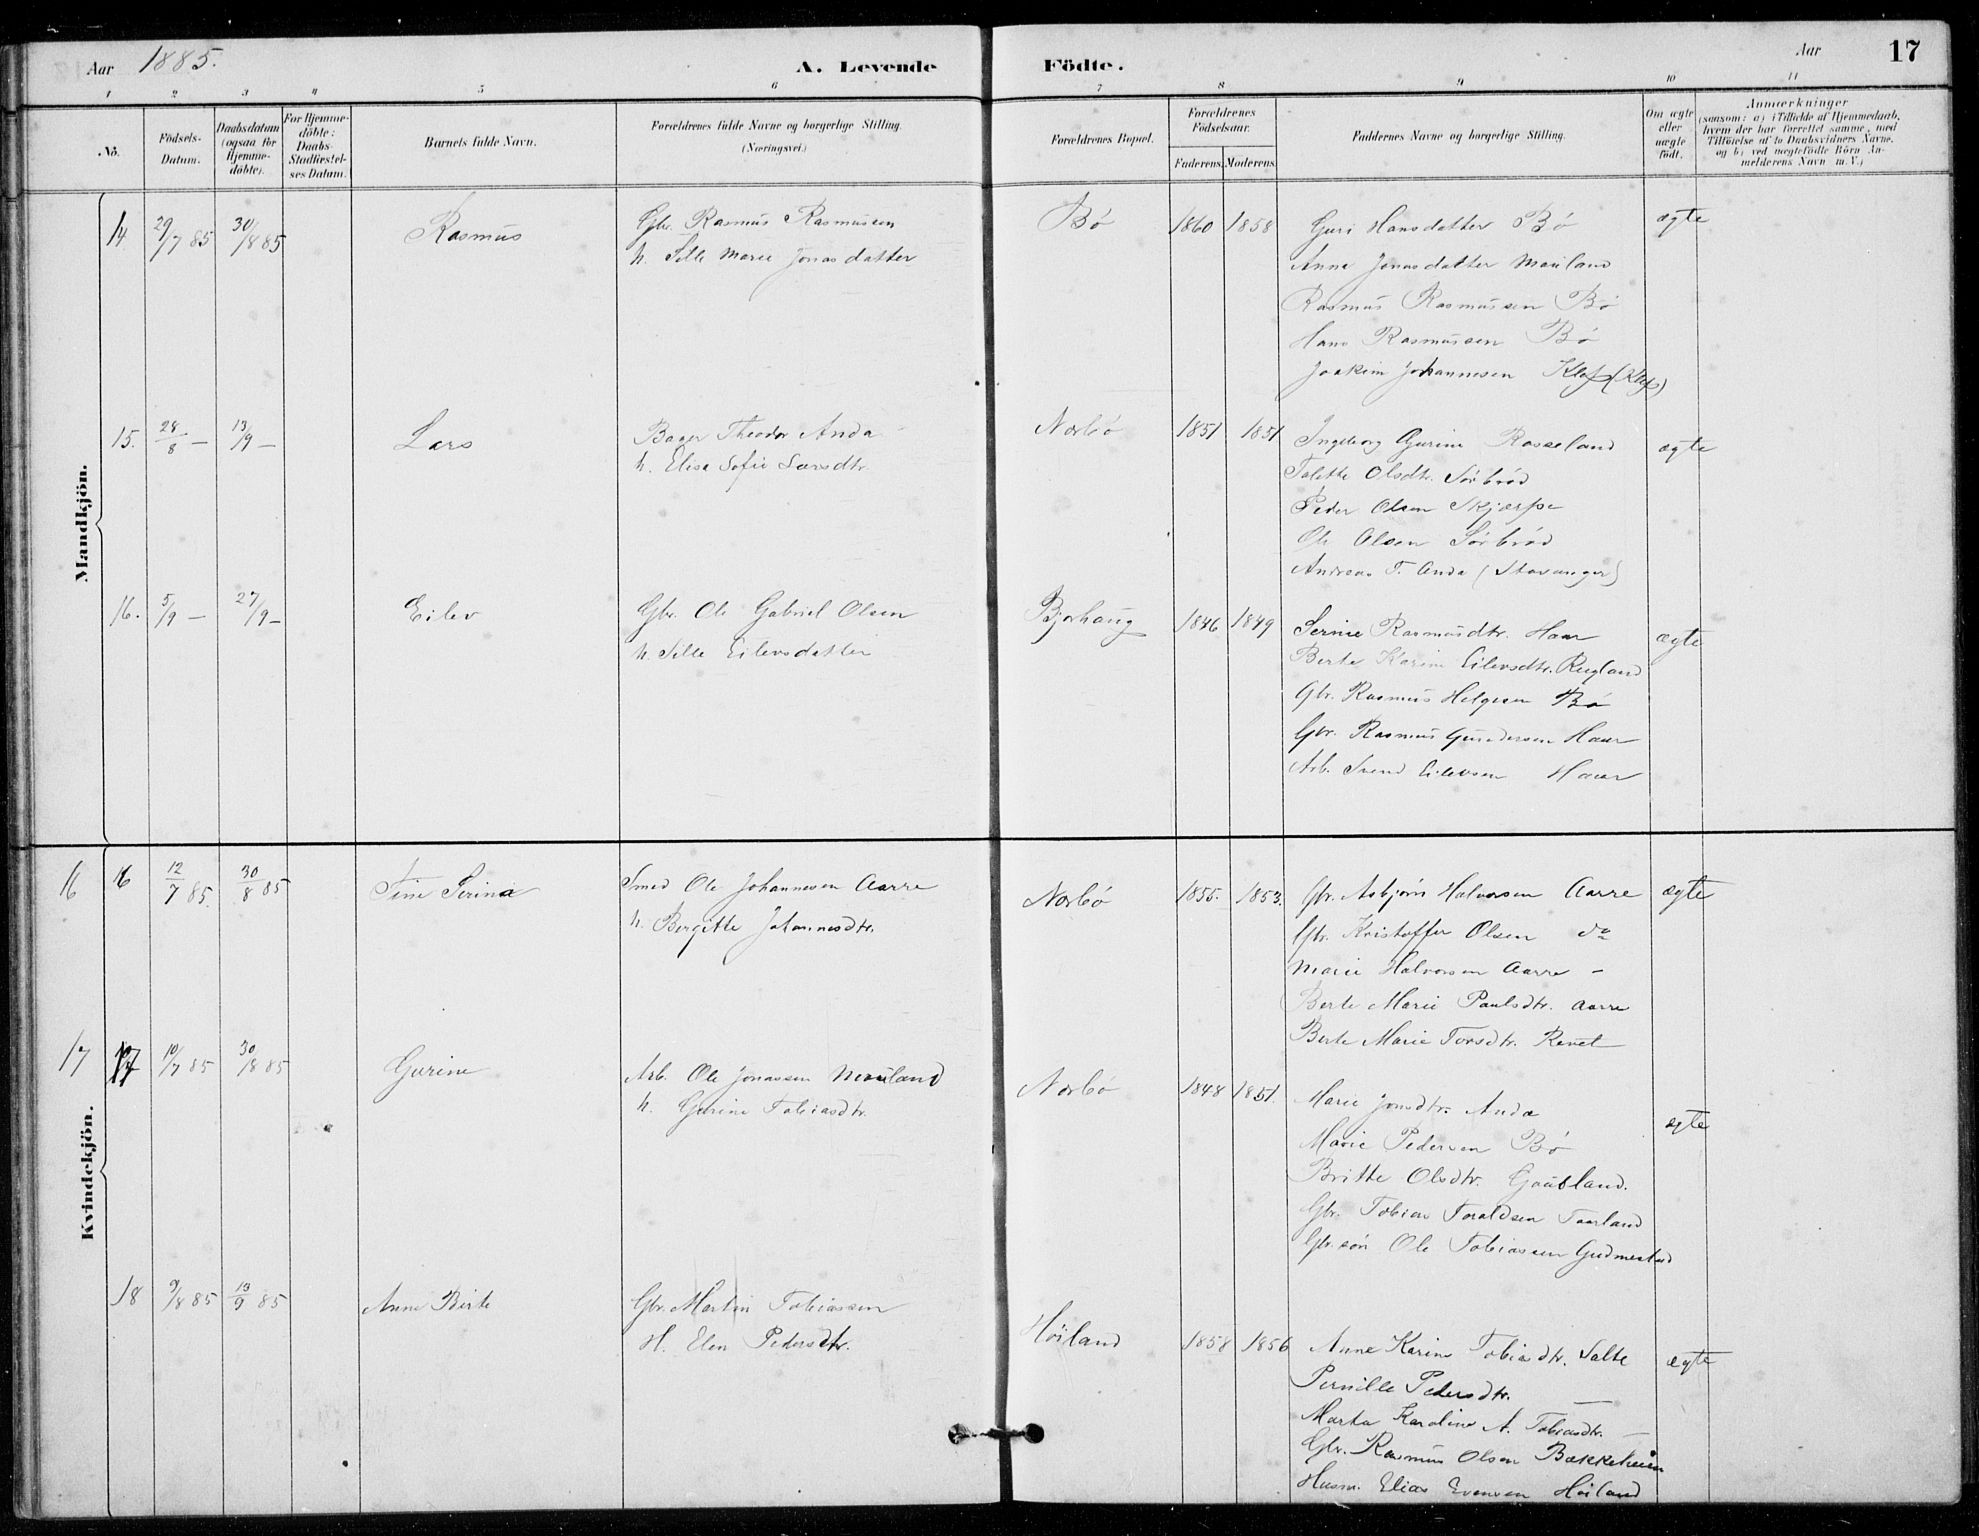 Aar 1885. A. Levende Födte. Aar 17
1 2 3 4 5 6 7 8 9 10 11
No. Födsels-Datum. Daabsdatum (ogsaa for Hjemme-döbte). For Hjemme-döbte: Daabs-Stadfæstel-ses Datum. Barnets fulde Navn. Forældrenes fulde Navne og borgerlige Stilling. (Næringsvei.) Forældrenes Bopæl. Forældrenes Födselsaar. Faderens. Moderens. Faddernes Navne og borgerlige Stilling. Om ægte eller uægte födt. Anmærkninger (saasom: a) i Tilfælde af Hjemmedaab, hvem der har forrettet samme, med Tilföielse af to Daabsvidners Navne, og b) ved uægtefödte Börn An-melderens Navn m. V.)
Mandkjön.
14. 29/7 85 30/8 85 Rasmus Gbr. Rasmus Rasmussen Bö 1860 1858 Guri Hansdatter Bö ægte
h. Sille Marie Jonasdatter Anna Jonasdatter Mauland
Rasmus Rasmussen Bö
Hans Rasmussen Bö
Joakim Johannesen Klep (Klep)
15. 28/8 — 13/9 — Lars Bager Theodor Anda Norbö 1851 1851 Ingeborg Gurine Rosseland ægte
h. Elisa Sofie Larsdtr. Talette Olsdtr. Sörbröd
Peder Olsen Skjærpe
Ole Olsen Sörbröd
Andreas T. Anda (Stavanger)
16. 5/9 — 27/9 — Eilev Gbr. Ole Gabriel Olsen Bjorhaug 1846 1849 Serine Rasmusdtr. Haar ægte
h. Sille Eilevsdatter Berte Karine Eilevsdtr. Rugland
Gbr. Rasmus Helgesen Bö
Gbr. Rasmus Gundersen Haar
Arb. Svend Eilevsen Haar
Kvindekjön.
16 16 12/7 85. 30/8 85 Tine Serina Smed Ole Johannesen Aarre Norbö 1855. 1853. Gbr. Asbjörn Halvorsen Aarre ægte
h. Bergitte Johannesdtr. Gbr. Kristoffer Olsen do
Marie Halvorsen Aarre —
Berte Marie Paulsdtr. Aarre
Berte Marie Torsdtr. Revet
17 17 10/7 85 30/8 85 Gurine Arb. Ole Jonassen Mauland Norbö 1848 1851. Marie Jonsdtr. Anda ægte
h. Gurine Tobiasdtr. Marie Pedersen Bö
Britte Olsdtr. Grödland.
Gbr. Tobias Toraldsen Taarland
Gbr. sön Ole Tobiassen Gudmestad
18 9/8 85 13/9 85 Anne Berte Gbr. Martin Tobiassen Höiland 1858 1856 Anne Karine Tobiasdtr. Salte ægte
H. Elen Pedersdtr. Pernille Pedersdtr. —
Marta Karoline A. Tobiasdtr. —
Gbr. Rasmus Olsen Bækkeheien
Husm. Elias Evensen Höiland